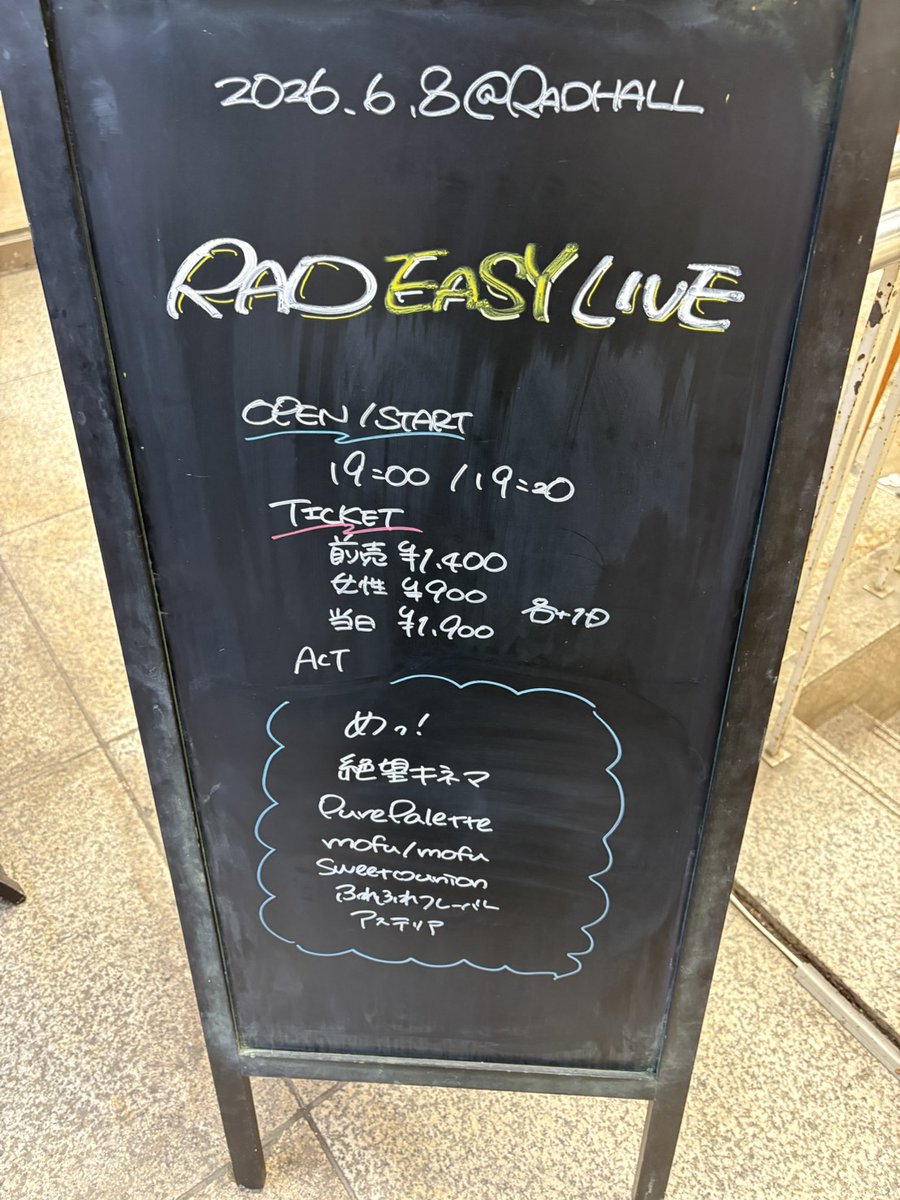 2026.6.8@RADHALL
RAD EASY LIVE
OPEN/START
19:00 / 19:20
TICKET
前売 ¥1.400
女性 ¥900
当日 ¥1.900
各+1D
ACT
めっ!
絶望キネマ
PurePalette
mofu/mofu
Sweetcounion
ふれふれフレーバル
アステリア